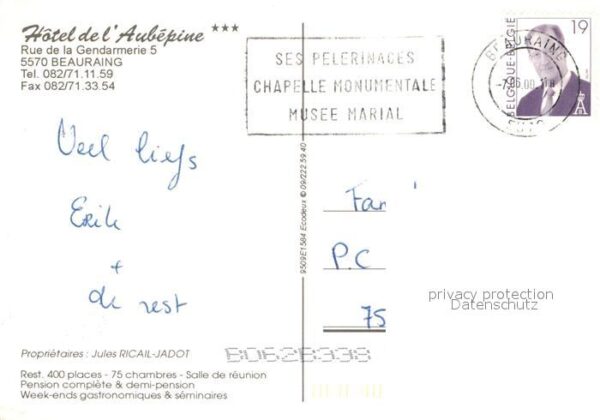 Hôtel de l'Aubépine ***
Rue de la Gendarmerie 5
5570 BEAURAING
Tel. 082/71.11.59
Fax 082/71.33.54
SES PELERINAGES
CHAPELLE MONUMENTALE
MUSEE MARIAL
BEAURAING
19
BELGIQUE-BELGIE
Veel liefs
Erik
+
de rest
9509E1584 Ecodeux © 09/222.59.40
Fam
P.C
75
privacy protection
Datenschutz
Propriétaires : Jules RICAIL-JADOT
B062B338
Rest. 400 places - 75 chambres - Salle de réunion
Pension complète & demi-pension
Week-ends gastronomiques & séminaires